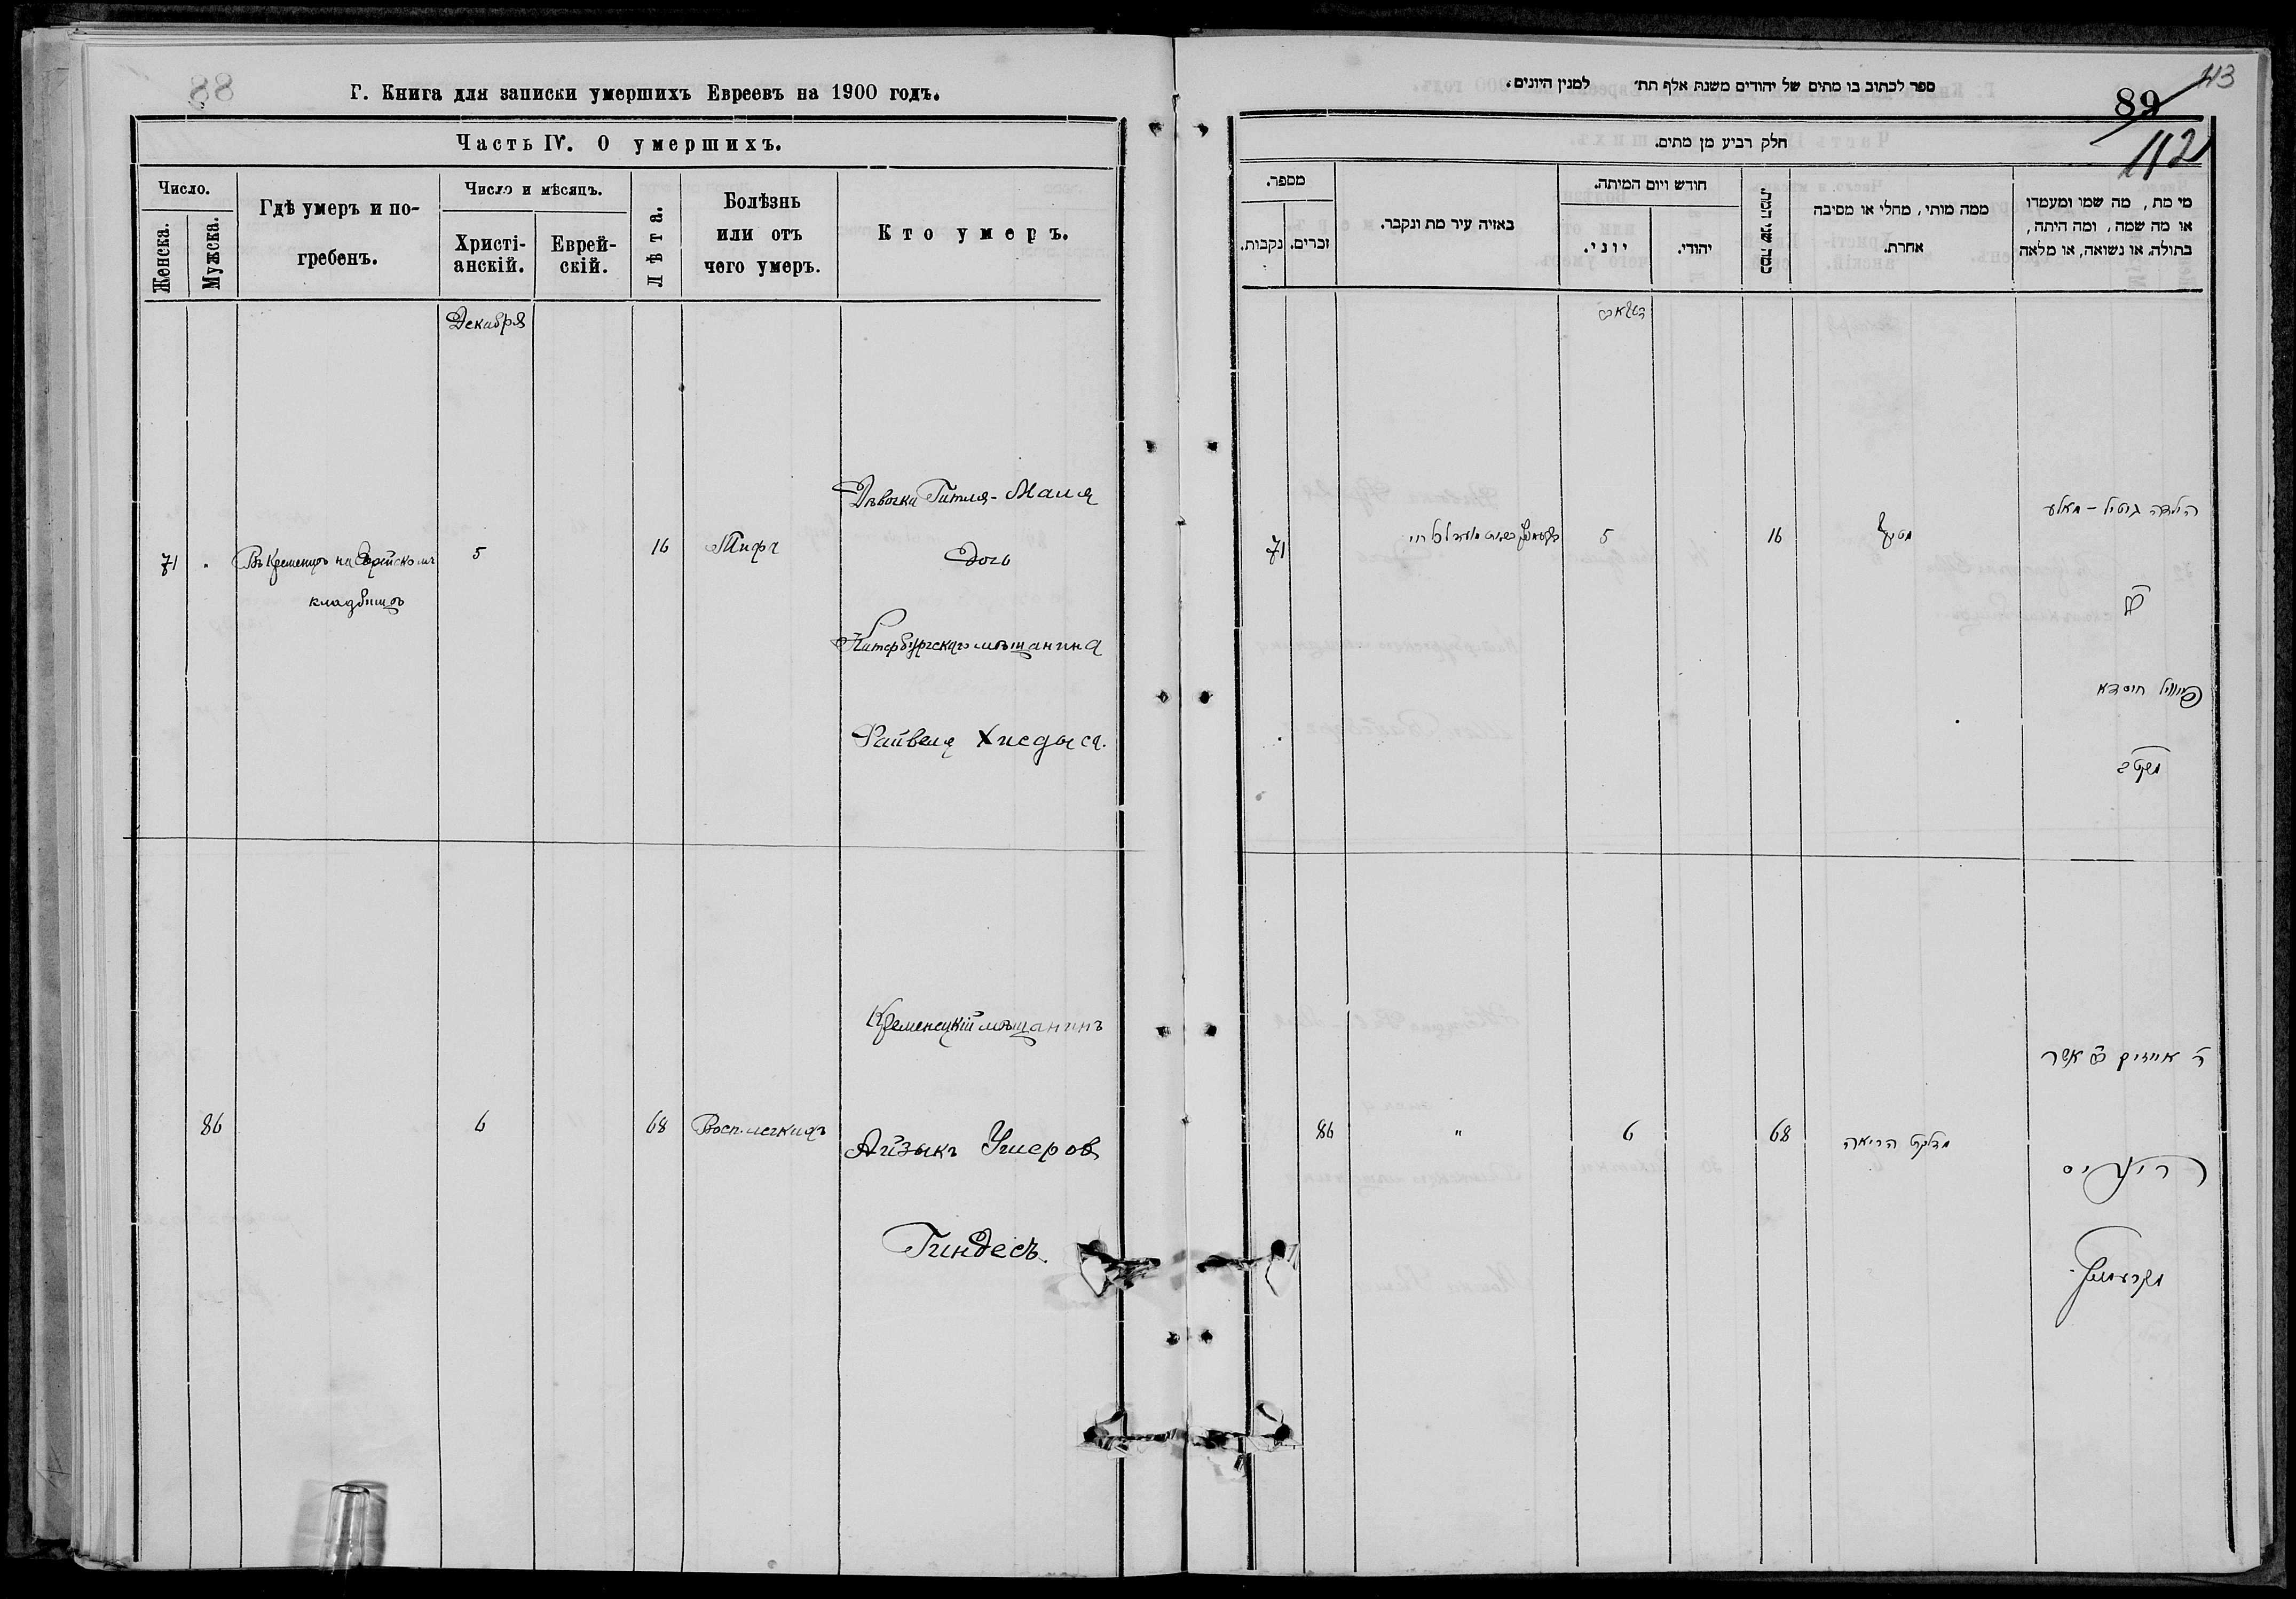 88
Г. Книга для записки умершихъ Евреевъ на 1900 годъ.
Часть IV. О умершихъ.
Число.
Женска.
Мужска.
Гдѣ умеръ и по-
гребенъ.
Число и мѣсяцъ.
Христі-
анскій.
Еврей-
скій.
Лѣта.
Болѣзнь
или отъ
чего умеръ.
Кто умеръ.
Декабря
71
Въ Кременцѣ на Еврейскомъ
кладбищѣ
5
16
Тифъ
Дѣвочка Гитля-Маля
Дочь
мѣщанина
Файвеля Хисдыса.
86
6
68
Восп. легкихъ
Кременецкій мѣщанинъ
Айзыкъ Ушеров
Гиндесъ
ספר לכתוב בו מתים של יהודים משנת אלף תת׳ למנין היונים.
89
113
112
חלק רביע מן מתים.
מספר.
נקבות.
זכרים.
באיזה עיר מת ונקבר.
חודש ויום המיתה.
יוני.
יהודי.
כמה שני המת.
ממה מותי, מחלי או מסיבה
אחרת.
מי מת, מה שמו ומעמדו
או מה שמה, ומה היתה,
בתולה. או נשואה, או מלאה
71
5
16
הילדה גיטיל - מאלע
פייוויל חיסדא
86
"
6
68
מדלקת הריאה
ר' אייזיק ב"ר אשר
הינדיס